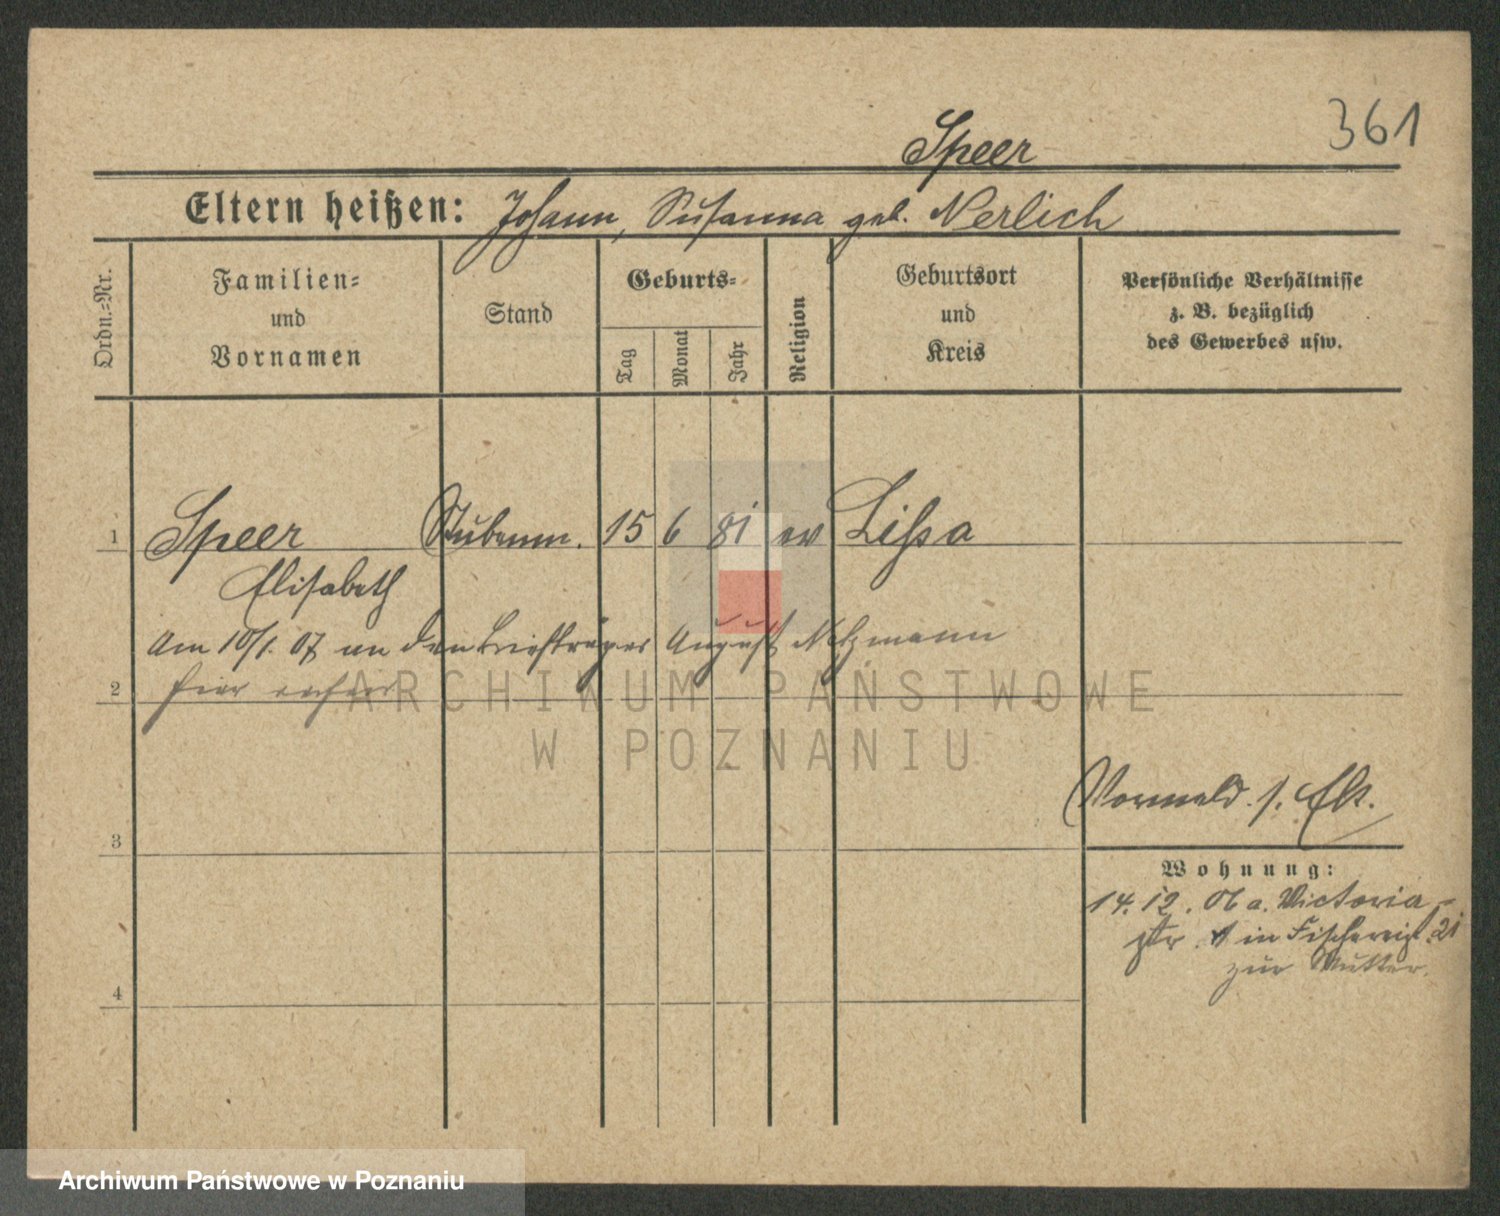 361
Speer
Eltern heißen: Johann, Susanna geb. Nerlich
Ordn.=Nr.
Familien=
und
Vornamen
Stand
Geburts=
Tag
Monat
Jahr
Religion
Geburtsort
und
Kreis
Persönliche Verhältnisse
z. B. bezüglich
des Gewerbes usw.
1 Speer Stubenm. 15 6 81 ev Lissa
Elisabeth
Am 10/1. 07 an den Briefträger August
2 hier
ARCHIWUM PAŃSTWOWE
W POZNANIU
3
Vormeld. s.
Wohnung:
14. 12. 06 a. Victoria-
str. in 21
zur Mutter.
4
Archiwum Państwowe w Poznaniu